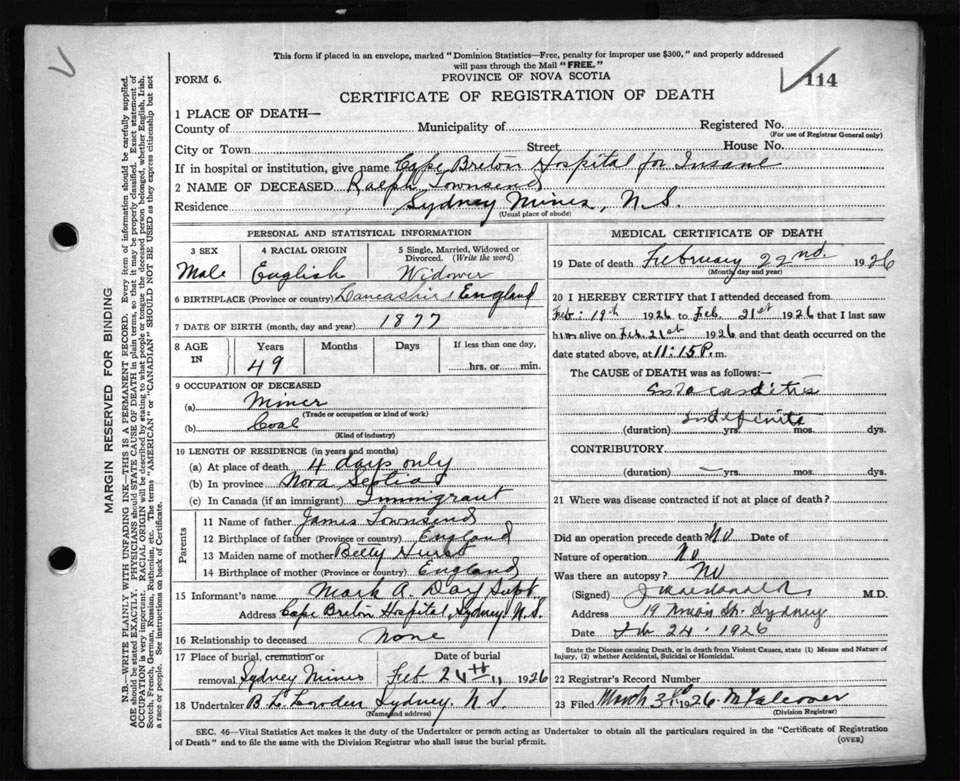 This form if placed in an envelope, marked "Dominion Statistics—Free, penalty for improper use $300," and properly addressed
will pass through the Mail "FREE."
FORM 6.
PROVINCE OF NOVA SCOTIA
114
CERTIFICATE OF REGISTRATION OF DEATH
1 PLACE OF DEATH—
County of Municipality of Registered No.
(For use of Registrar General only)
City or Town Street House No.
If in hospital or institution, give name Cape Breton Hospital for Insane
2 NAME OF DECEASED Ralph Townsend
Residence Sydney Mines, N.S.
(Usual place of abode)
PERSONAL AND STATISTICAL INFORMATION
3 SEX 4 RACIAL ORIGIN 5 Single, Married, Widowed or
Divorced. (Write the word)
Male English Widower
6 BIRTHPLACE (Province or country) Lancashire England
7 DATE OF BIRTH (month, day and year) 1877
8 AGE IN Years Months Days If less than one day,
49 hrs. or min.
9 OCCUPATION OF DECEASED
(a) Miner
(Trade or occupation or kind of work)
(b) Coal
(Kind of industry)
10 LENGTH OF RESIDENCE (in years and months)
(a) At place of death 4 days only
(b) In province Nova Scotia
(c) In Canada (if an immigrant) Immigrant
Parents
11 Name of father James Townsend
12 Birthplace of father (Province or country) England
13 Maiden name of mother Betty Hurst
14 Birthplace of mother (Province or country) England
15 Informant's name Mark A. Day Supt.
Address Cape Breton Hospital, Sydney N.S.
16 Relationship to deceased None
17 Place of burial, cremation or Date of burial
removal Sydney Mines Feb 24th 1926
18 Undertaker Sydney N.S.
(Name and address)
MEDICAL CERTIFICATE OF DEATH
19 Date of death February 22nd. 1926
(Month, day and year)
20 I HEREBY CERTIFY that I attended deceased from
Feb: 19th 1926 to Feb. 21st 1926 that I last saw
him alive on Feb. 21st 1926 and that death occurred on the
date stated above, at 11.15 P. m.
The CAUSE OF DEATH was as follows:—
Endocarditis
Indefinite
(duration) yrs. mos. dys.
CONTRIBUTORY
(duration) yrs. mos. dys.
21 Where was disease contracted if not at place of death?
Did an operation precede death? No Date of
Nature of operation No
Was there an autopsy? No
(Signed) J Macdonald M.D.
Address 19 St. Sydney
Date Feb 24. 1926
State the Disease causing Death, or in death from Violent Causes, state (1) Means and Nature of
Injury, (2) whether Accidental, Suicidal or Homicidal.
22 Registrar's Record Number
23 Filed March 3rd 1926
(Division Registrar)
SEC. 46—Vital Statistics Act makes it the duty of the Undertaker or person acting as Undertaker to obtain all the particulars required in the "Certificate of Registration
of Death" and to file the same with the Division Registrar who shall issue the burial permit. (OVER)
MARGIN RESERVED FOR BINDING
N.B.—WRITE PLAINLY WITH UNFADING INK—THIS IS A PERMANENT RECORD. Every item of information should be carefully supplied.
AGE should be stated EXACTLY. PHYSICIANS should STATE CAUSE OF DEATH in plain terms, so that it may be properly classified. Exact statement of
OCCUPATION is very important. RACIAL ORIGIN will be described by stating to what people or tongue the deceased person belonged, whether English, Irish,
Scotch, French, German, Russian, Ruthenian, etc. The terms "AMERICAN" or "CANADIAN" SHOULD NOT BE USED as they express citizenship but not
a race or people. See instructions on back of Certificate.